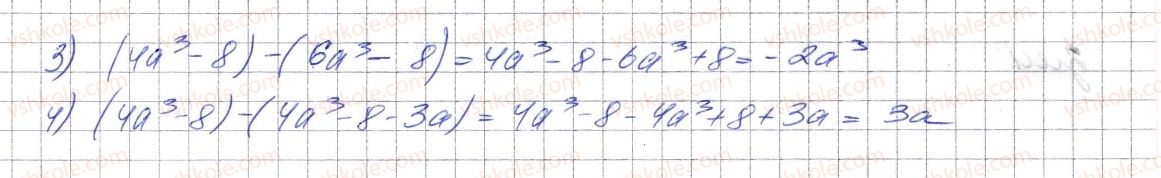 3) (4a³-8)-(6a³-8)=4a³-8-6a³+8=-2a³
4) (4a³-8)-(4a³-8-3a)=4a³-8-4a³+8+3a=3a